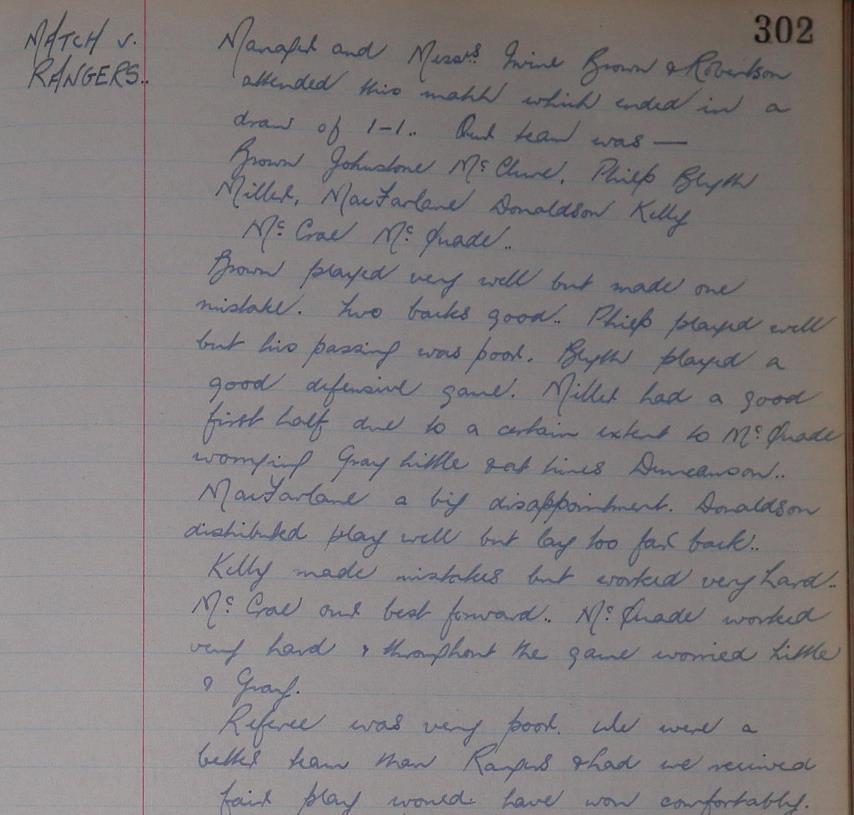 302
MATCH v.
RANGERS..
Manager and Messrs. Irvine Brown & Robertson
attended this match which ended in a
draw of 1-1.. Our team was —
Brown Johnstone McClure. Philp Blyth
Miller, MacFarlane Donaldson Kelly
McCrae McQuade..
Brown played very well but made one
mistake. Two backs good.. Philp played well
but his passing was poor. Blyth played a
good defensive game. Miller had a good
first half due to a certain extent to McQuade
worrying Gray Little & at times Duncanson..
MacFarlane a big disappointment. Donaldson
distributed play well but lay too far back..
Kelly made mistakes but worked very hard..
McCrae our best forward.. McQuade worked
very hard & throughout the game worried Little
& Gray.
Referee was very poor. We were a
better team than Rangers & had we received
fair play would have won comfortably.